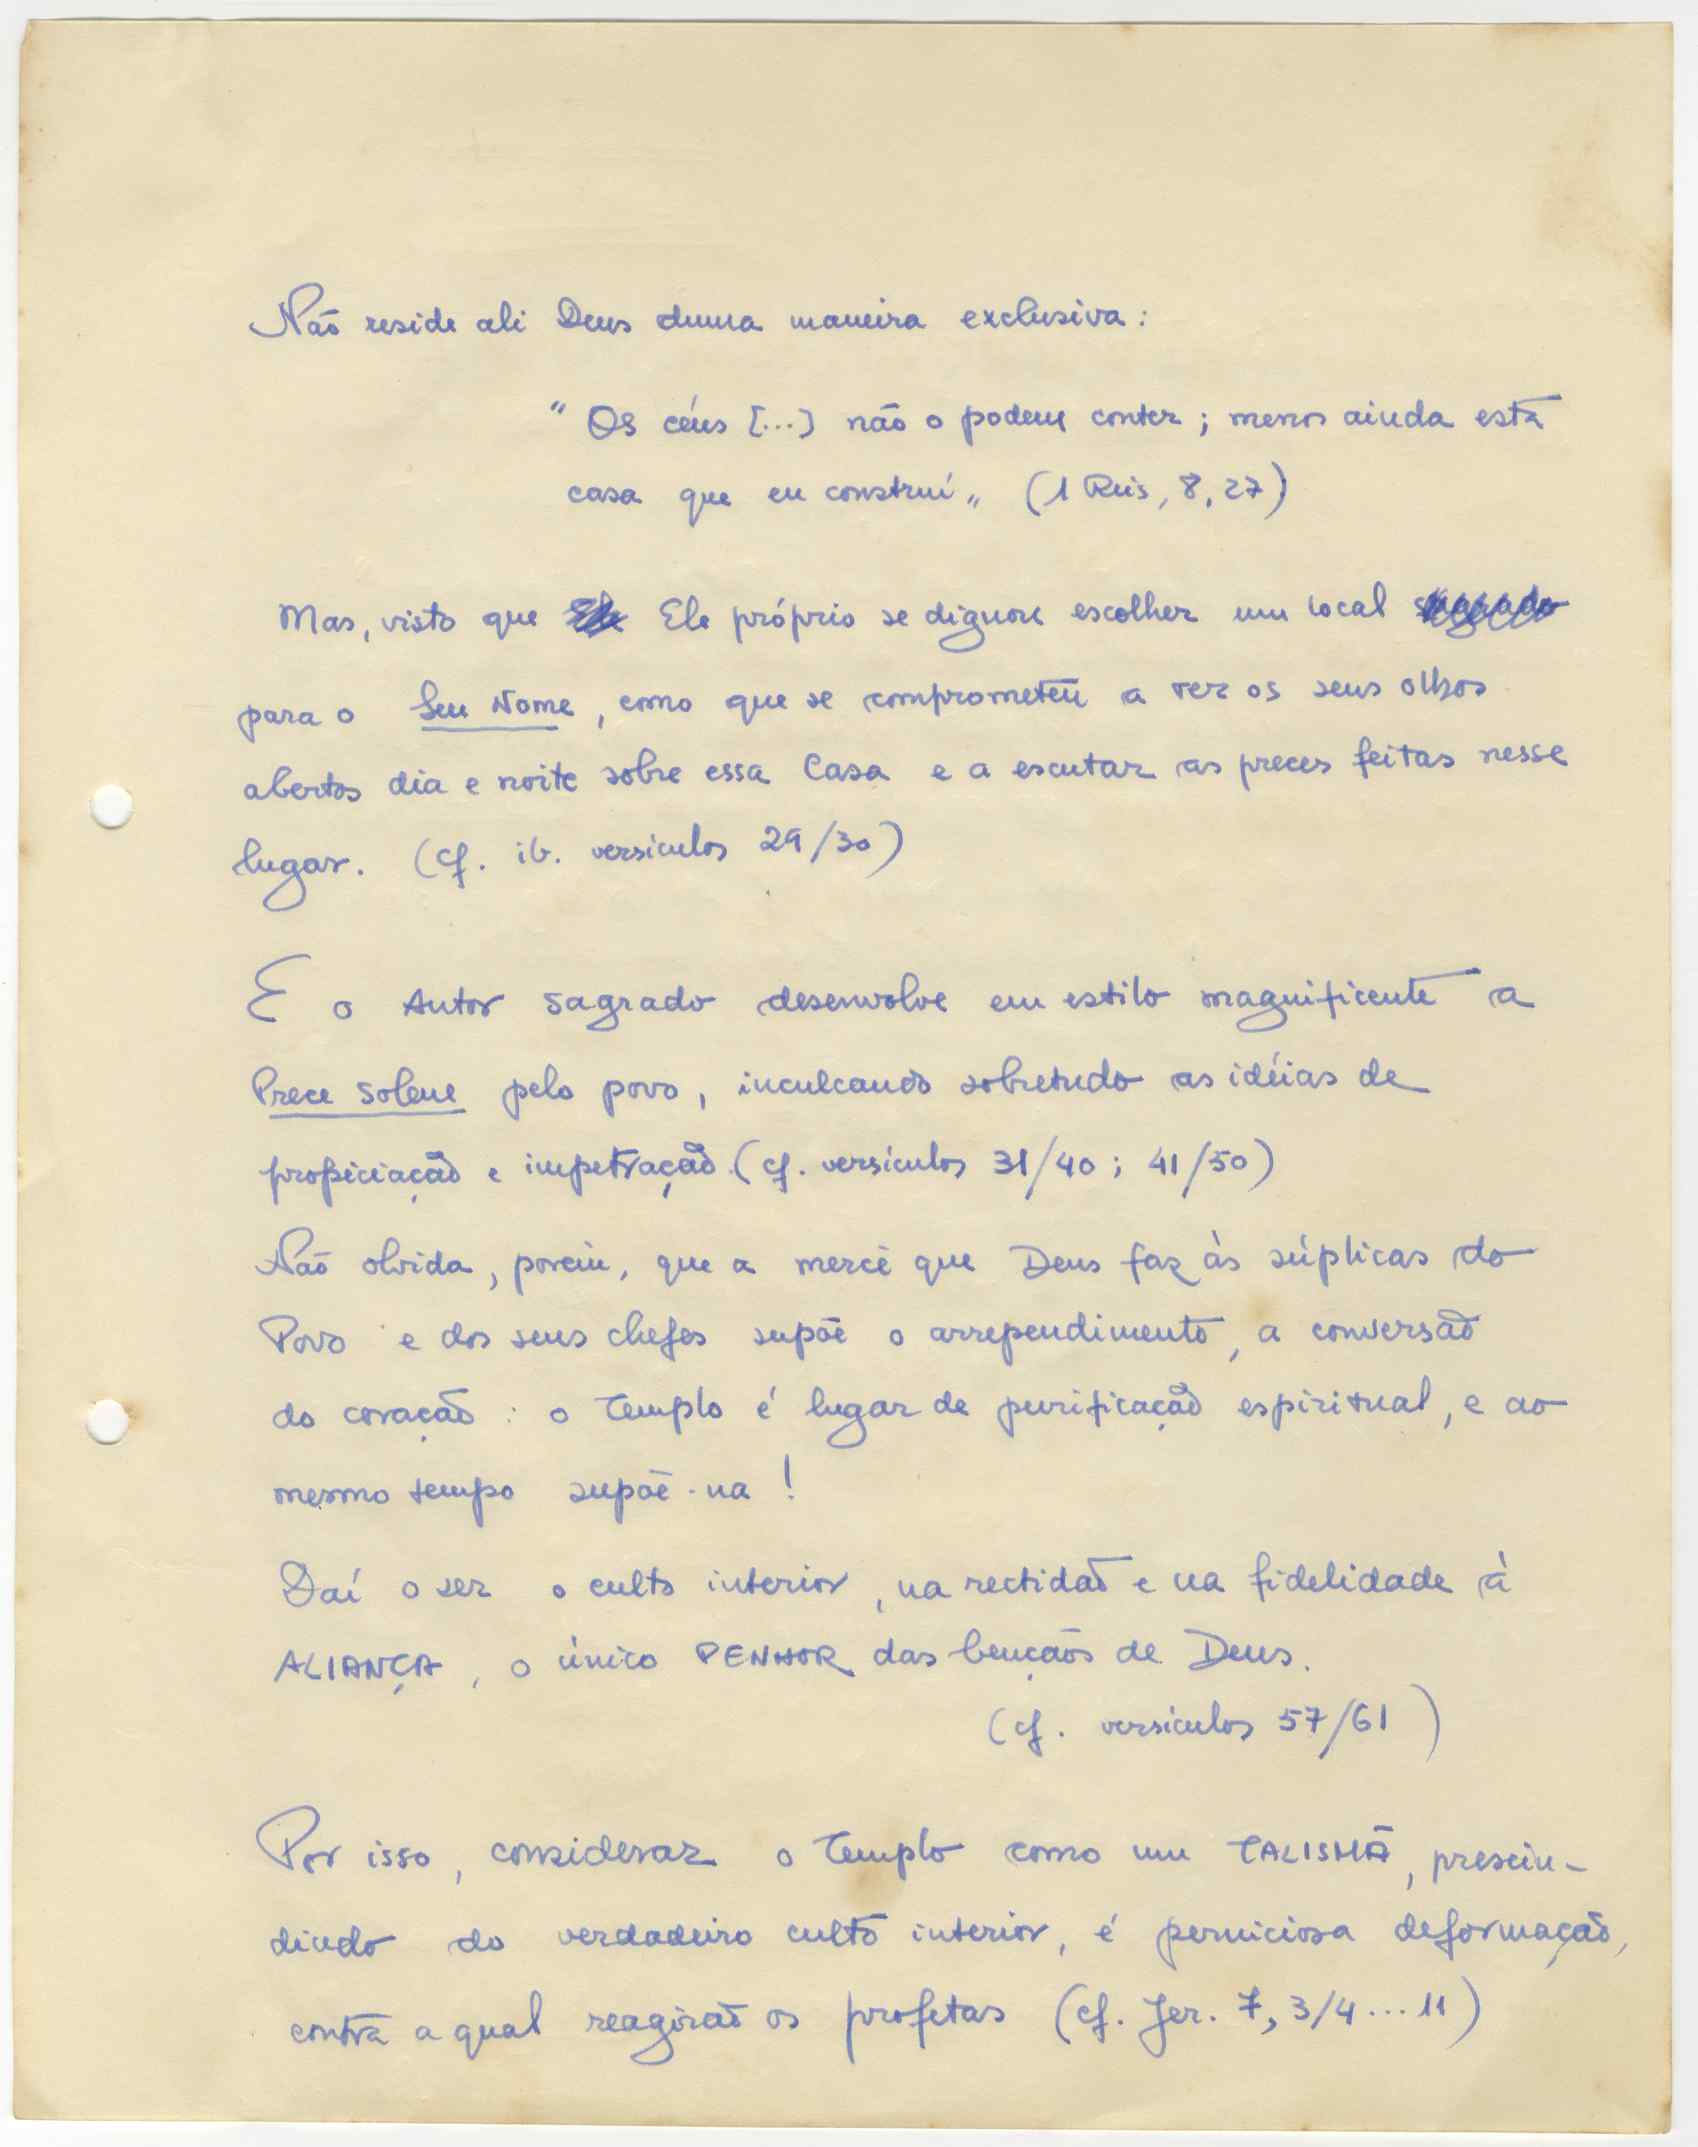 Não reside ali Deus duma maneira exclusiva:
"Os céus [...] não o podem conter; menos ainda esta
casa que eu construí" (1 Reis, 8, 27)
Mas, visto que Ele próprio se dignou escolher um local sagrado
para o Seu Nome, como que se comprometeu a ter os seus olhos
abertos dia e noite sobre essa Casa e a escutar as preces feitas nesse
lugar. (cf. ib. versículos 29/30)
E o Autor sagrado desenvolve em estilo magnificente a
Prece solene pelo povo, inculcando sobretudo as idéias de
propiciação e impetração. (cf. versículos 31/40; 41/50)
Não olvida, porém, que a mercê que Deus faz às súplicas do
Povo e dos seus chefes supõe o arrependimento, a conversão
do coração: o Templo é lugar de purificação espiritual, e ao
mesmo tempo supõe-na!
Daí o ser o culto interior, na rectidão e na fidelidade à
ALIANÇA, o único PENHOR das bençãos de Deus.
(cf. versículos 57/61)
Por isso, considerar o Templo como um TALISMÃ, prescin-
dindo do verdadeiro culto interior, é perniciosa deformação,
contra a qual reagirão os profetas (cf. Jer. 7, 3/4...11)